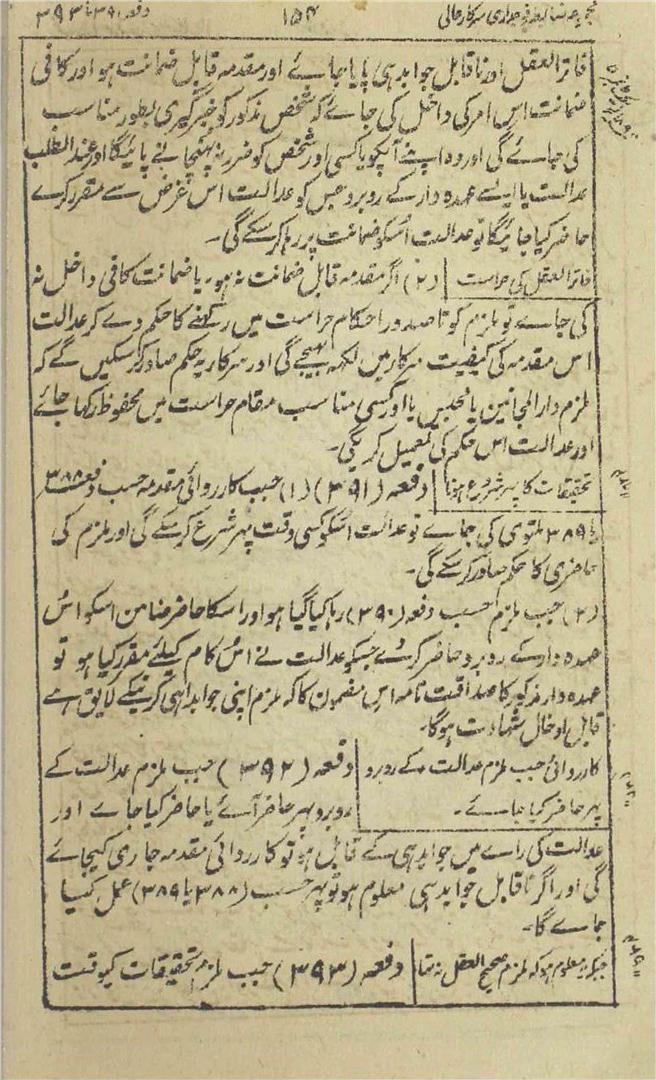 مجموعہ ضابطہ فوجداری سرکار عالی ۱۵۴ دفعہ ۳۹۱ تا ۳۹۳
فاتر العقل اور ناقابل جوابدہی پایا جائے اور مقدمہ قابل ضمانت ہو اور کافی
ضمانت اس امر کی داخل کی جائے کہ شخص مذکور کو خبر گیری بطور مناسب
کی جائے گی اور وہ اپنے آپکو یا کسی اور شخص کو ضرر نہ پہنچانے پائیگا اور عند الطلب
عدالت یا ایسے عہدہ دار کے روبرو جس کو عدالت اس غرض سے مقرر کرے
حاضر کیا جائیگا تو عدالت اسکو ضمانت پر رہا کر سکے گی۔
فاتر العقل کی حراست (۲) اگر مقدمہ قابل ضمانت نہ ہو، یا ضمانت کافی داخل نہ
کی جاے تو ملزم کو تا صدور احکام حراست میں رکھنے کا حکم دے کر عدالت
اس مقدمہ کی کیفیت سرکار میں لکھ بھیجے گی اور سرکار یہ حکم صادر کر سکیں گے کہ
ملزم دار المجانین یا محبس یا اور کسی مناسب مقام حراست میں محفوظ رکھا جائے
اور عدالت اس حکم کی تعمیل کریگی۔
تحقیقات کا پھر شروع ہونا دفعہ (۳۹۱) (۱) جب کارروائی مقدمہ حسب دفعہ ۳۸۸
یا ۳۸۹ ملتوی کی جاے تو عدالت اسکو کسی وقت پھر شروع کر سکے گی اور ملزم کی
حاضری کا حکم صادر کر سکے گی۔
(۲) جب ملزم حسب دفعہ (۳۹۰) رہا کیا گیا ہو اور اسکا حاضر ضامن اسکو اس
عہدہ دار کے روبرو حاضر کرے جسکو عدالت نے اس کام کیلئے مقرر کیا ہو تو
عہدہ دار مذکور کا صداقت نامہ اس مضمون کا کہ ملزم اپنی جوابدہی کرنیکے لایق ہے
قابل ادخال شہادت ہوگا۔
کارروائی جب ملزم عدالت کے روبرو دفعہ (۳۹۲) جب ملزم عدالت کے
پھر حاضر کیا جائے۔ روبرو پھر حاضر آئے یا حاضر کیا جاے اور
عدالت کی راے میں جوابدہی کے قابل ہو تو کارروائی مقدمہ جاری کیجائے
گی اور اگر ناقابل جوابدہی معلوم ہو تو پھر حسب (۳۸۸ یا ۳۸۹) عمل کیا
جاے گا۔
جبکہ یہ معلوم ہو کہ ملزم صحیح العقل نہ تھا دفعہ (۳۹۳) جب ملزم تحقیقات کیوقت